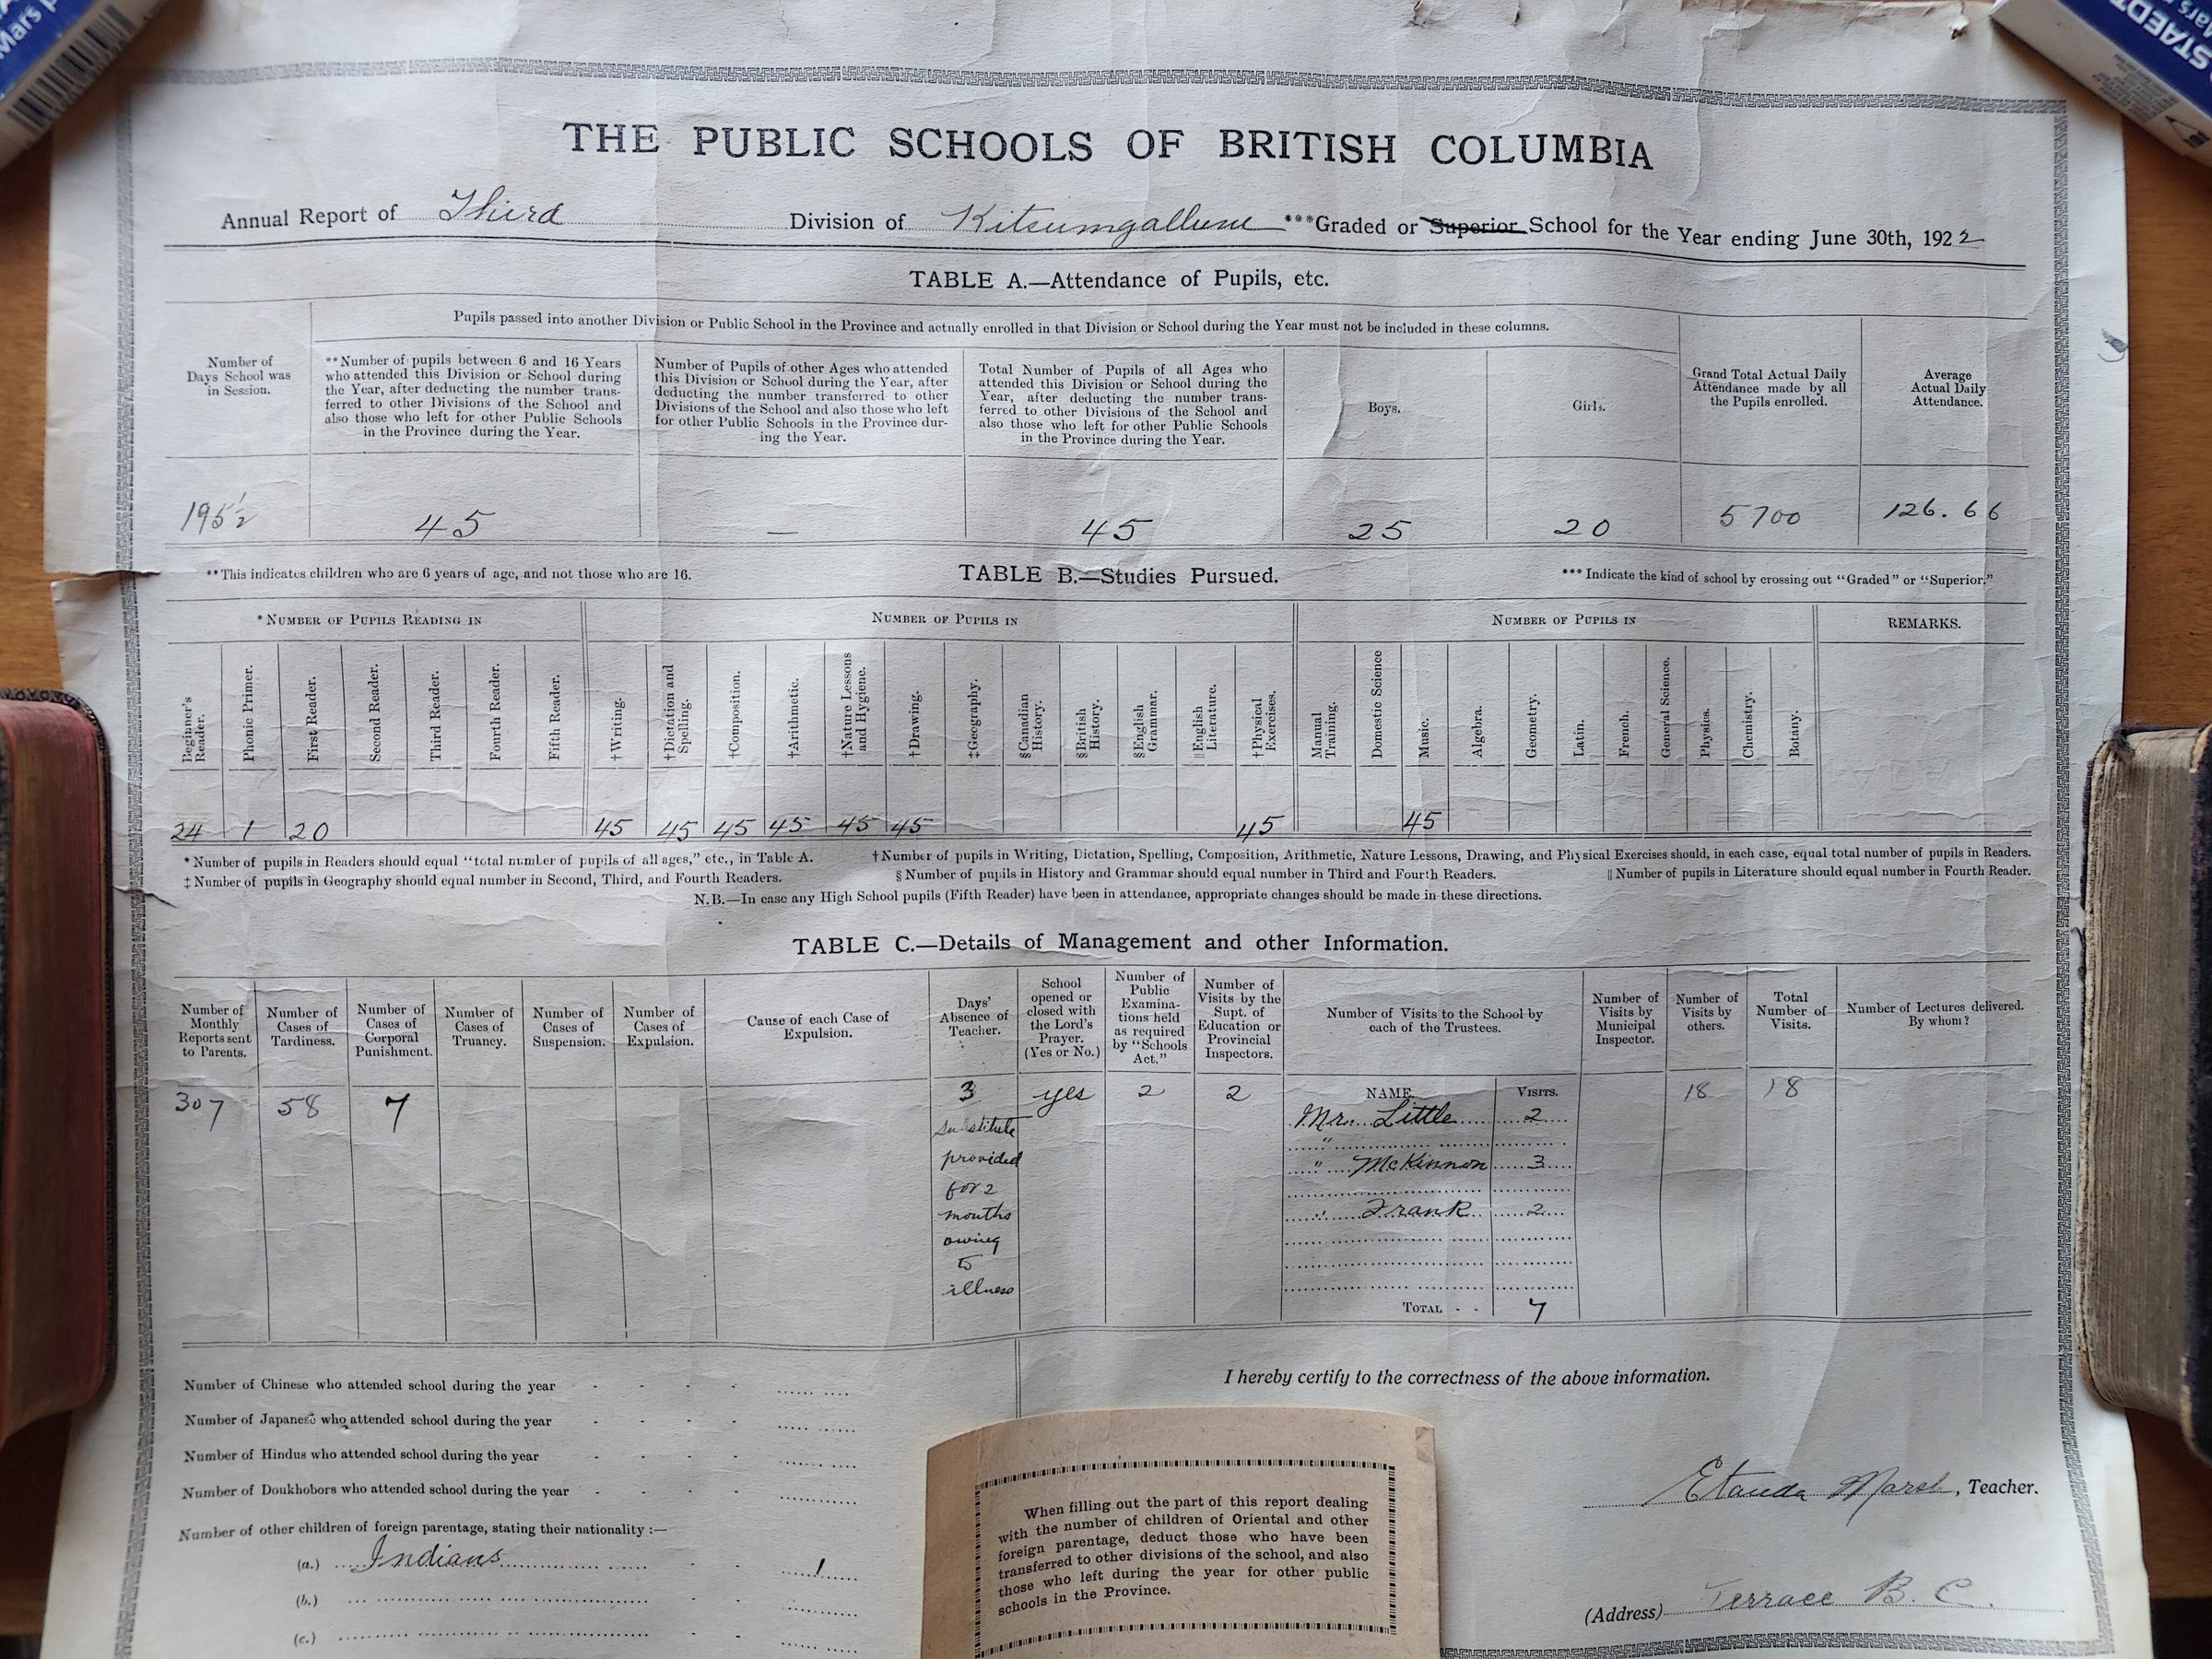 Mars
STAEDT
Mars
THE PUBLIC SCHOOLS OF BRITISH COLUMBIA
Annual Report of Third Division of Kitsumgallum ***Graded or Superior School for the Year ending June 30th, 1922
TABLE A.—Attendance of Pupils, etc.
Pupils passed into another Division or Public School in the Province and actually enrolled in that Division or School during the Year must not be included in these columns.
Number of
Days School was
in Session.
**Number of pupils between 6 and 16 Years
who attended this Division or School during
the Year, after deducting the number trans-
ferred to other Divisions of the School and
also those who left for other Public Schools
in the Province during the Year.
Number of Pupils of other Ages who attended
this Division or School during the Year, after
deducting the number transferred to other
Divisions of the School and also those who left
for other Public Schools in the Province dur-
ing the Year.
Total Number of Pupils of all Ages who
attended this Division or School during the
Year, after deducting the number trans-
ferred to other Divisions of the School and
also those who left for other Public Schools
in the Province during the Year.
Boys.
Girls.
Grand Total Actual Daily
Attendance made by all
the Pupils enrolled.
Average
Actual Daily
Attendance.
195½ 45 — 45 25 20 5700 126.66
**This indicates children who are 6 years of age, and not those who are 16.
TABLE B.—Studies Pursued.
***Indicate the kind of school by crossing out "Graded" or "Superior."
*NUMBER OF PUPILS READING IN
NUMBER OF PUPILS IN
NUMBER OF PUPILS IN
REMARKS.
Beginner's
Reader.
Phonic Primer.
First Reader.
Second Reader.
Third Reader.
Fourth Reader.
Fifth Reader.
†Writing.
†Dictation and
Spelling.
†Composition.
†Arithmetic.
†Nature Lessons
and Hygiene.
†Drawing.
‡Geography.
§Canadian
History.
§British
History.
§English
Grammar.
||English
Literature.
†Physical
Exercises.
Manual
Training.
Domestic Science
Music.
Algebra.
Geometry.
Latin.
French.
General Science.
Physics.
Chemistry.
Botany.
24 1 20 45 45 45 45 45 45 45 45
*Number of pupils in Readers should equal "total number of pupils of all ages," etc., in Table A.
†Number of pupils in Writing, Dictation, Spelling, Composition, Arithmetic, Nature Lessons, Drawing, and Physical Exercises should, in each case, equal total number of pupils in Readers.
‡Number of pupils in Geography should equal number in Second, Third, and Fourth Readers.
§Number of pupils in History and Grammar should equal number in Third and Fourth Readers.
||Number of pupils in Literature should equal number in Fourth Reader.
N.B.—In case any High School pupils (Fifth Reader) have been in attendance, appropriate changes should be made in these directions.
TABLE C.—Details of Management and other Information.
Number of
Monthly
Reports sent
to Parents.
Number of
Cases of
Tardiness.
Number of
Cases of
Corporal
Punishment.
Number of
Cases of
Truancy.
Number of
Cases of
Suspension.
Number of
Cases of
Expulsion.
Cause of each Case of
Expulsion.
Days'
Absence of
Teacher.
School
opened or
closed with
the Lord's
Prayer.
(Yes or No.)
Number of
Public
Examina-
tions held
as required
by "Schools
Act."
Number of
Visits by the
Supt. of
Education or
Provincial
Inspectors.
Number of Visits to the School by
each of the Trustees.
Number of
Visits by
Municipal
Inspector.
Number of
Visits by
others.
Total
Number of
Visits.
Number of Lectures delivered.
By whom?
307 58 7
3
substitute
provided
for 2
months
owing
to
illness
yes 2 2
NAME. VISITS.
Mr. Little 2
"
" McKinnon 3
" Frank 2
TOTAL - - 7
18 18
Number of Chinese who attended school during the year
Number of Japanese who attended school during the year
Number of Hindus who attended school during the year
Number of Doukhobors who attended school during the year
Number of other children of foreign parentage, stating their nationality :—
(a.) Indians 1
(b.)
(c.)
When filling out the part of this report dealing
with the number of children of Oriental and other
foreign parentage, deduct those who have been
transferred to other divisions of the school, and also
those who left during the year for other public
schools in the Province.
I hereby certify to the correctness of the above information.
Marsh, Teacher.
(Address) Terrace B. C.